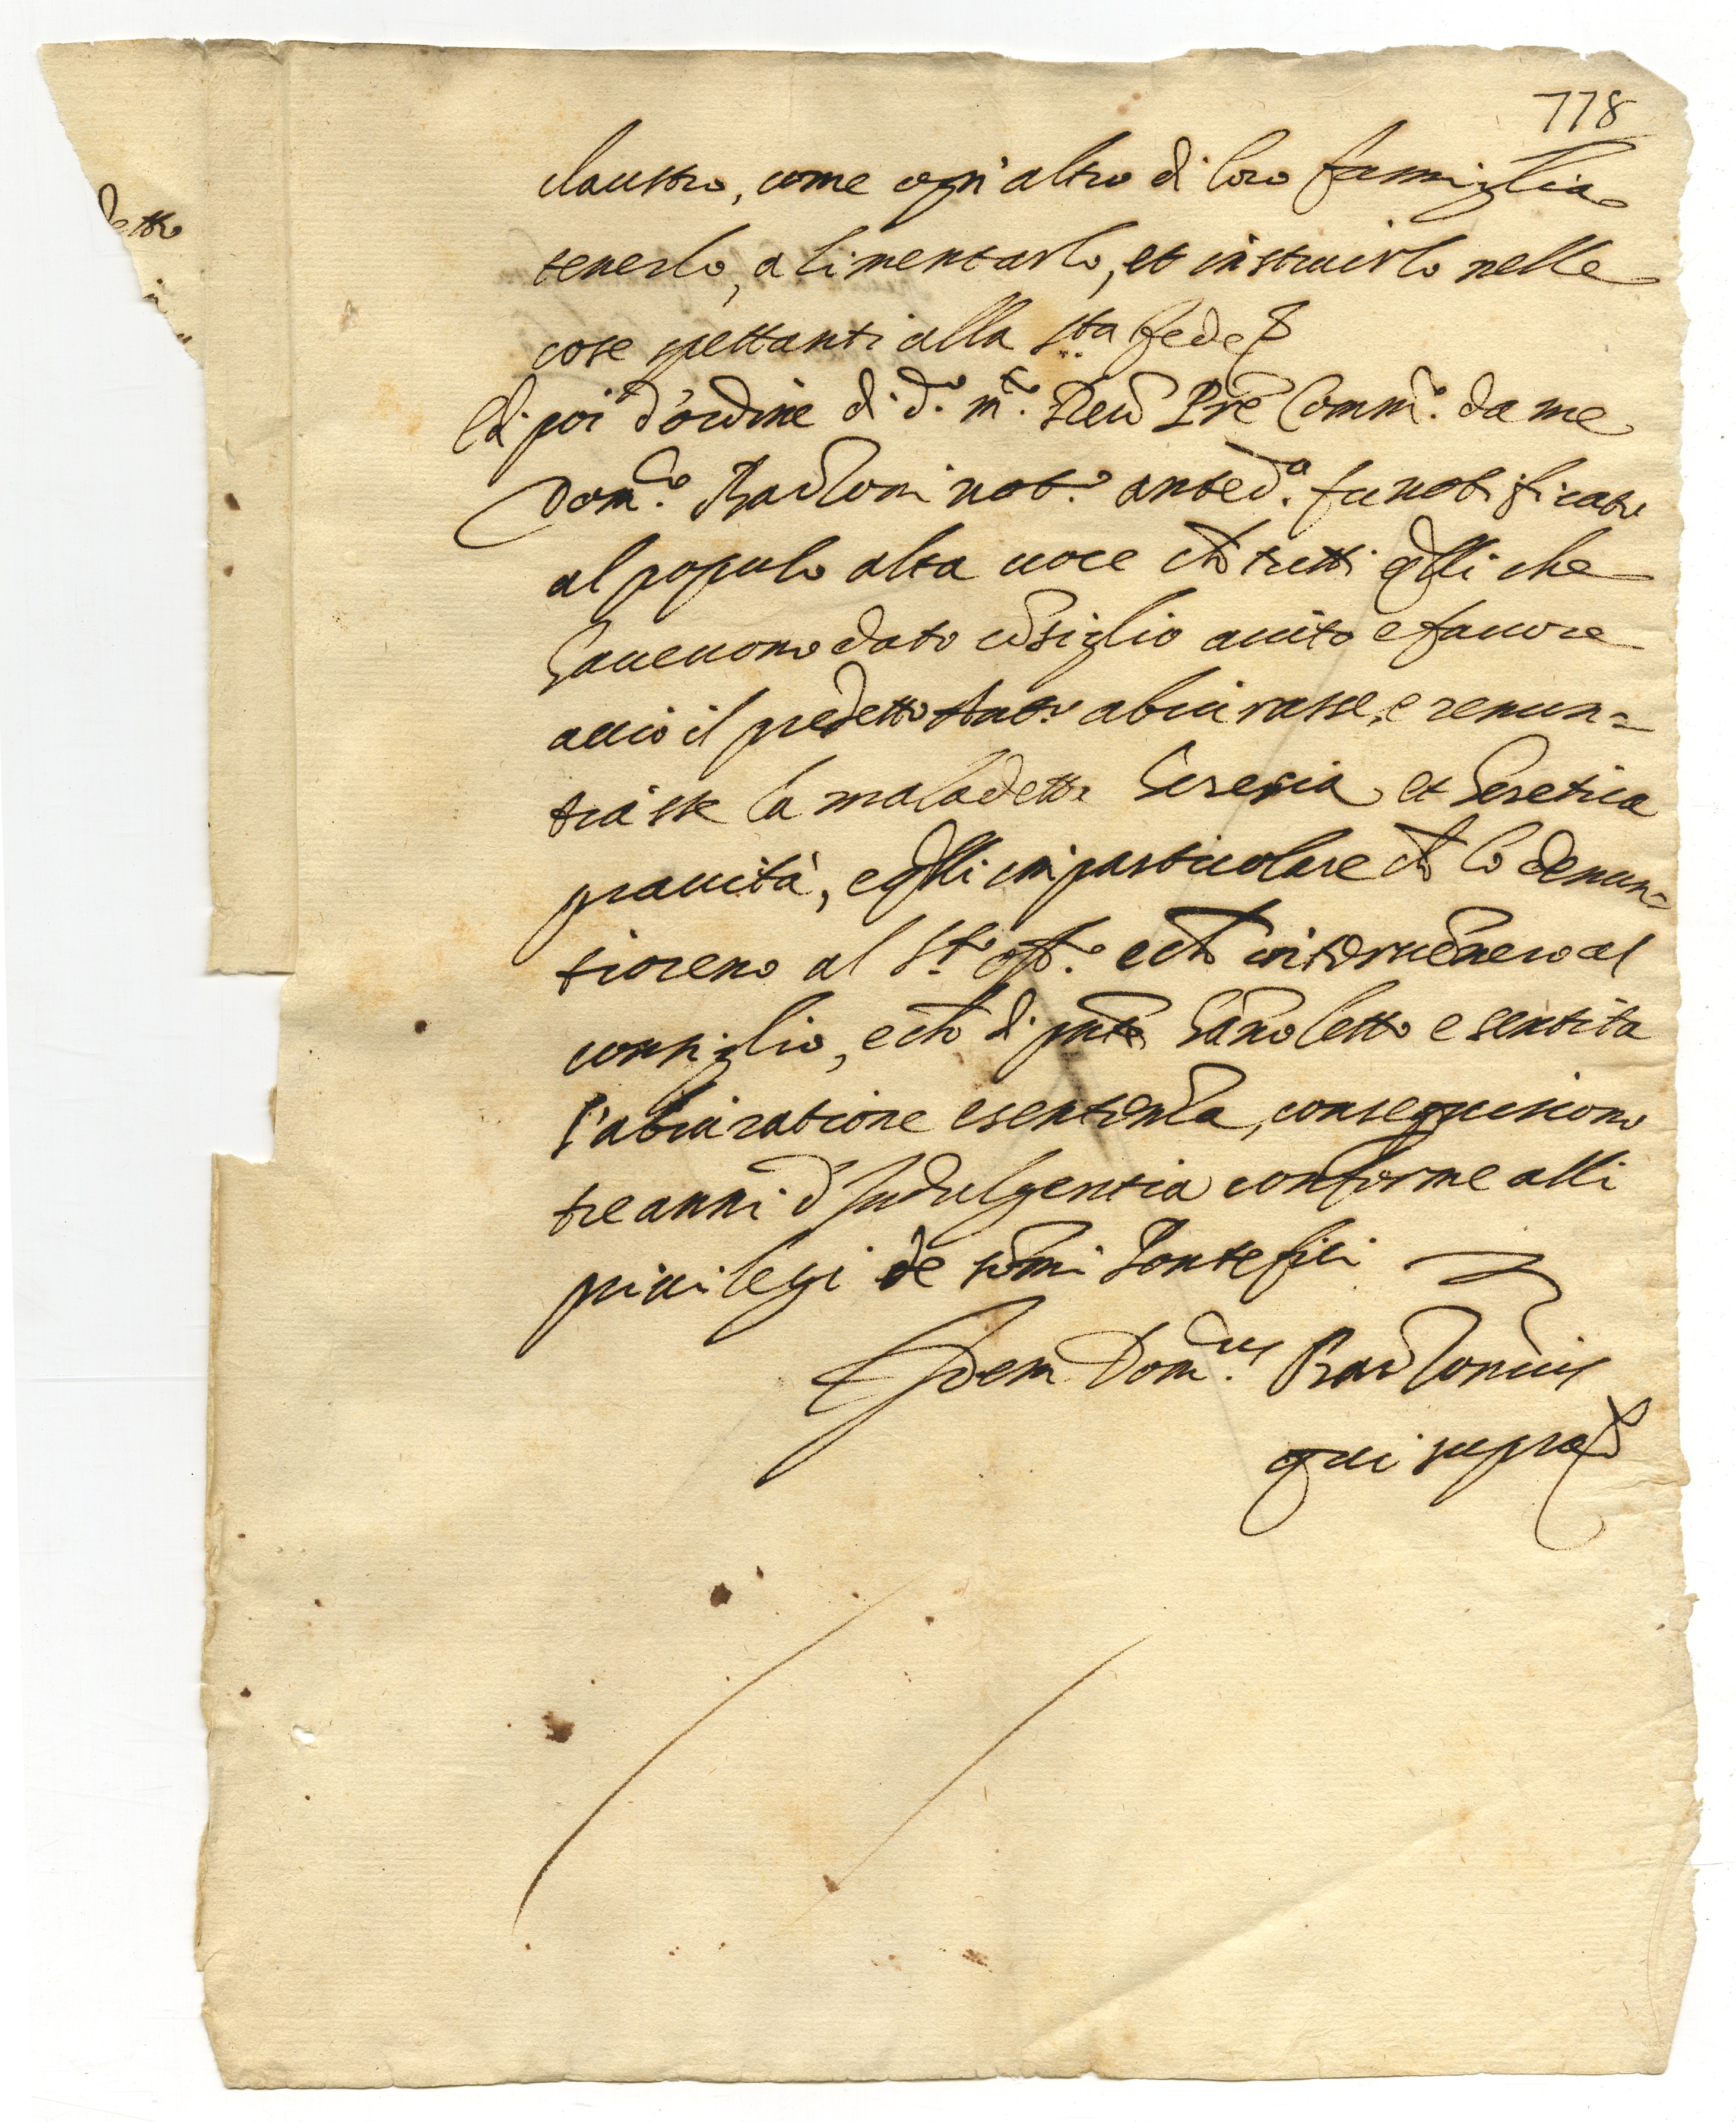 778
claustro, come ogn'altro di loro famiglia
tenerlo, alimentarlo, et instruirlo nelle
cose spettanti alla s.ta fede
Et poi d'ordine di d.o m.to Reu Pre Comm.o da me
Dom.co not.o anted.o fu notificato
al populo alta uoce ch tutti qlli che
haueuono dato cõsiglio aiuto e fauore
acciò il predetto abiurasse, e renun=
tiasse la maladetta heresia et heretica
prauità, e qlli in particolare ch lo denun=
tioreno al S.to off.o e ch interuẽnero al
consiglio, e ch di pñte hãno letto e sentita
l'abiuratione e sentenza, conseguiscono
tre anni d'Indulgentia conforme alli
priuilegi de sõmi Pontefici
Idem Dom.cus
qui supra
detto